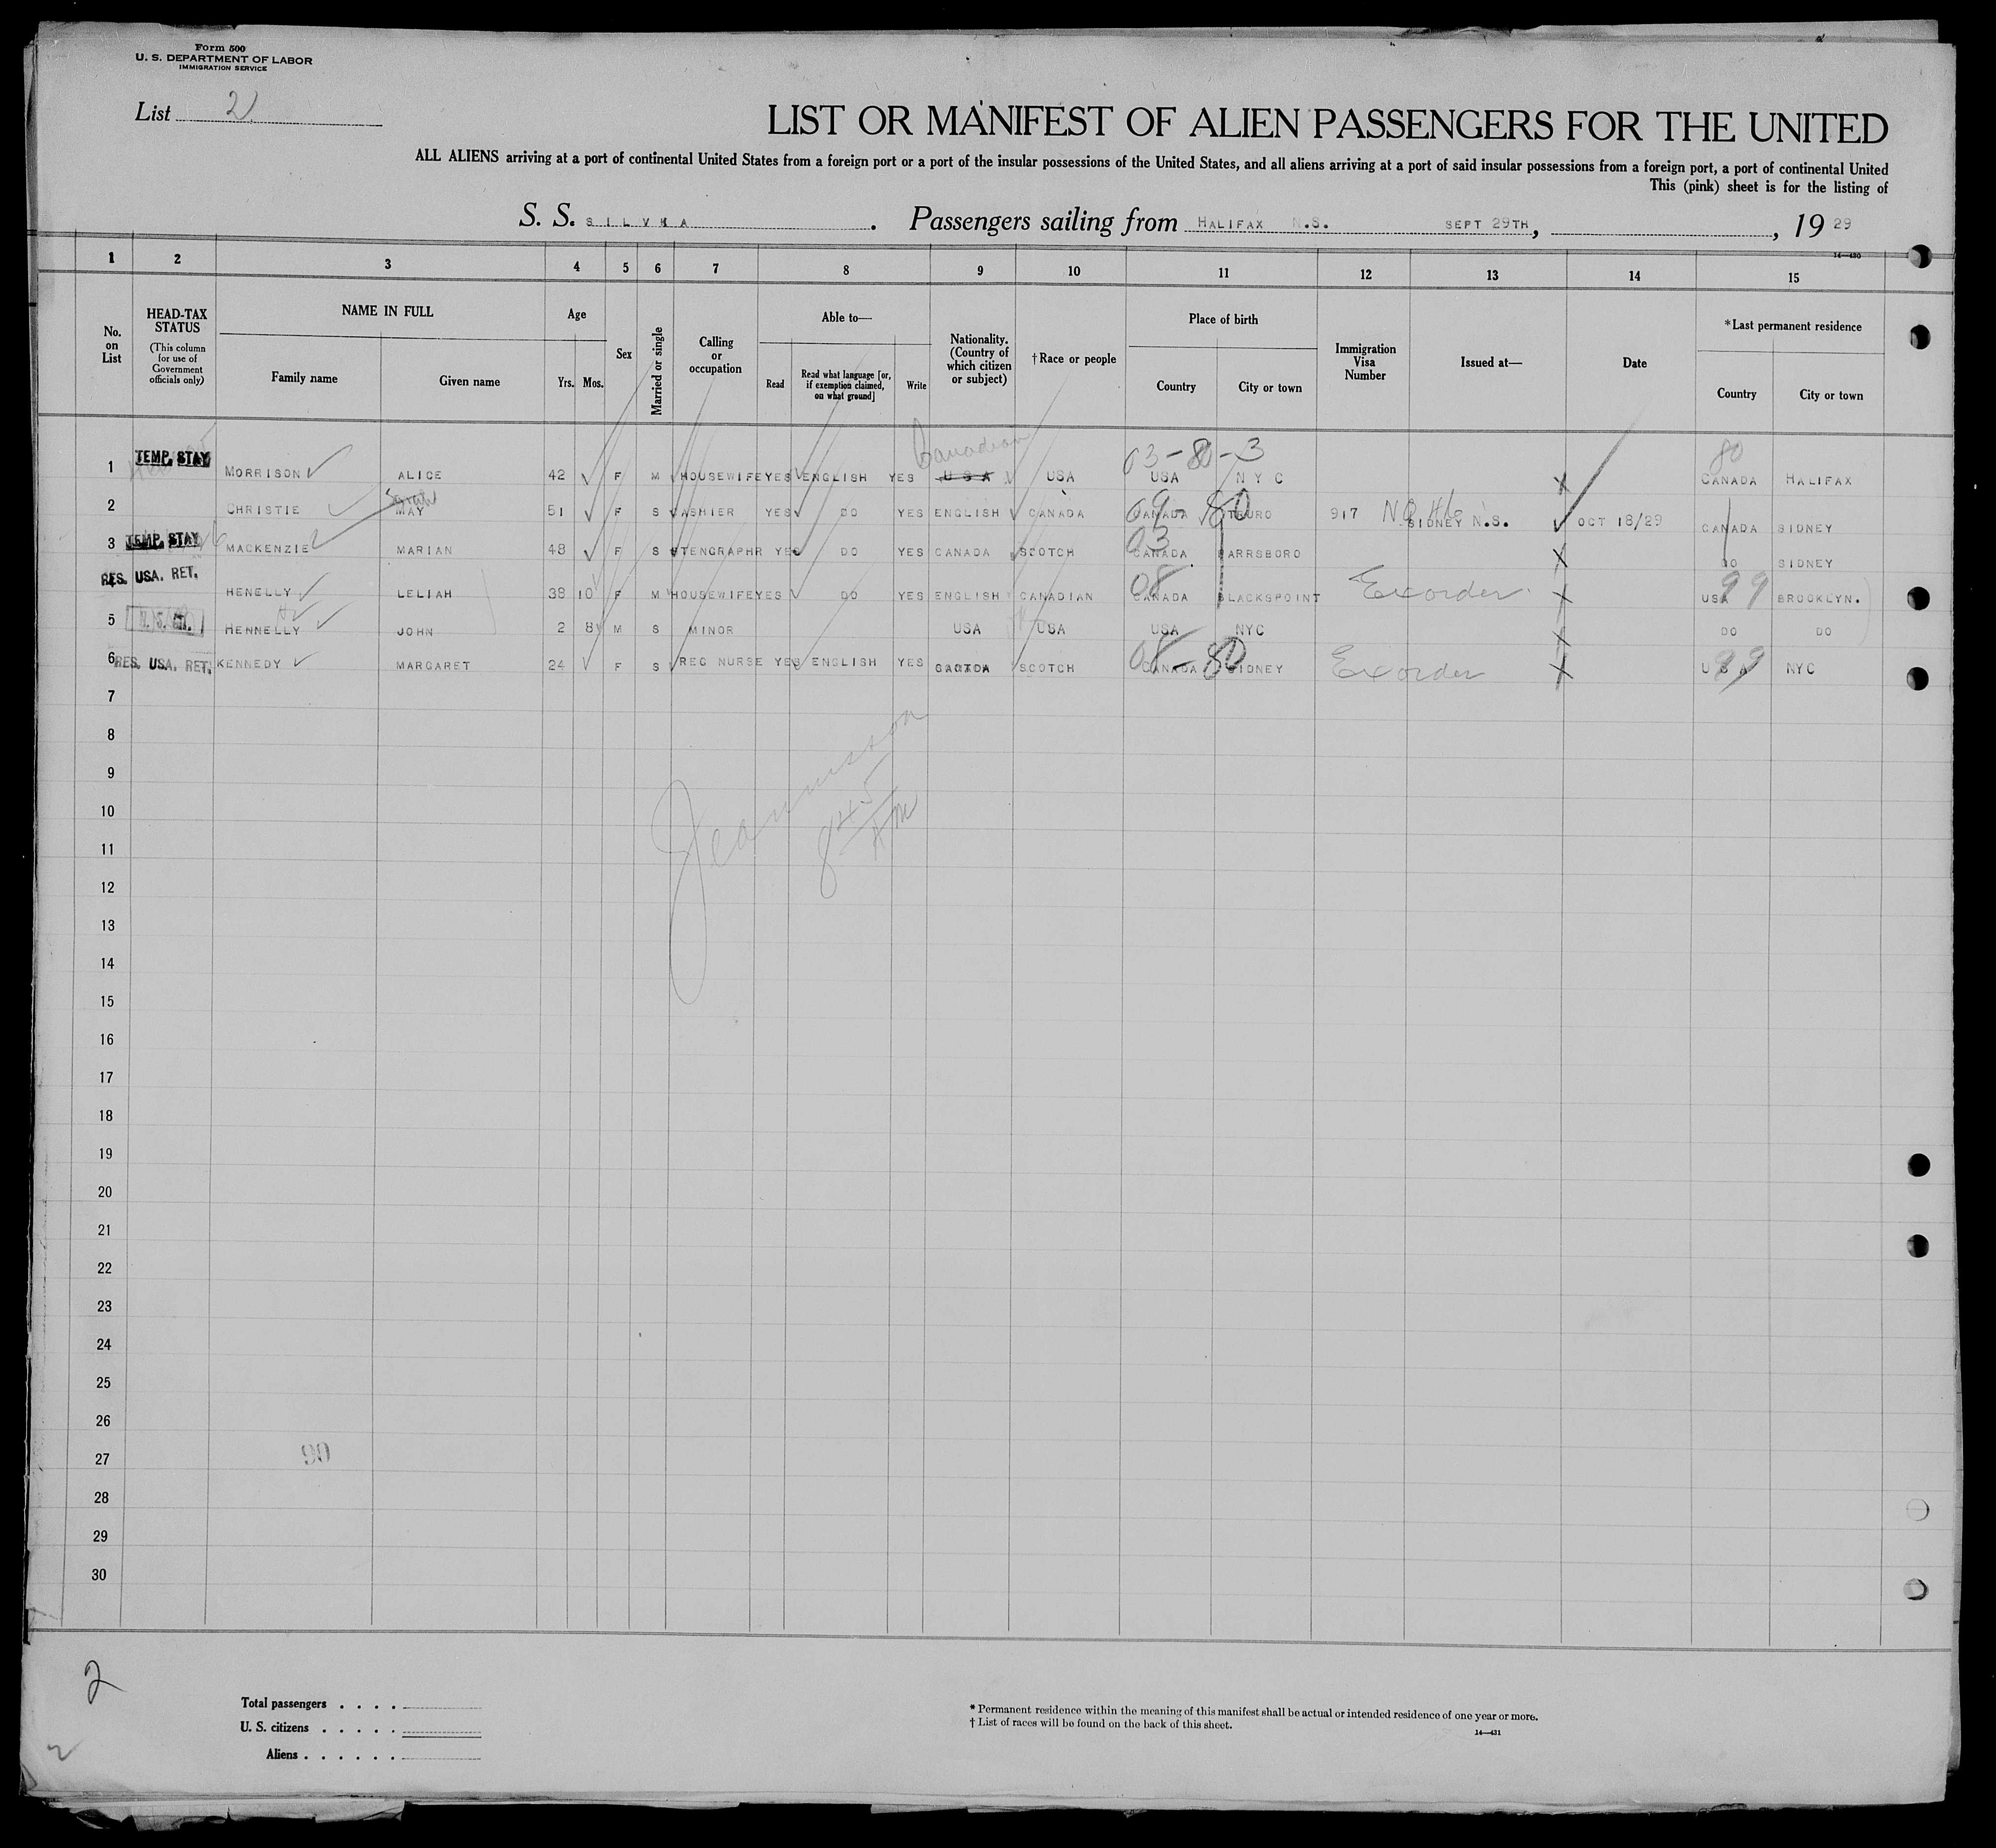 Form 500
U. S. DEPARTMENT OF LABOR
IMMIGRATION SERVICE
List 2
LIST OR MANIFEST OF ALIEN PASSENGERS FOR THE UNITED
ALL ALIENS arriving at a port of continental United States from a foreign port or a port of the insular possessions of the United States, and all aliens arriving at a port of said insular possessions from a foreign port, a port of continental United
This (pink) sheet is for the listing of
S. S. SILVIA. Passengers sailing from HALIFAX N.S. SEPT 29TH, , 19 29
14—430
1 2 3 4 5 6 7 8 9 10 11 12 13 14 15
No. on List
HEAD-TAX STATUS (This column for use of Government officials only)
NAME IN FULL
Family name Given name
Age
Yrs. Mos.
Sex
Married or single
Calling or occupation
Able to—
Read
Read what language [or, if exemption claimed, on what ground]
Write
Nationality. (Country of which citizen or subject)
†Race or people
Place of birth
Country City or town
Immigration Visa Number
Issued at—
Date
*Last permanent residence
Country City or town
Canadian 03-80-3 80
1 TEMP. STAY MORRISON ALICE 42 F M HOUSEWIFE YES ENGLISH YES U S A USA USA N Y C CANADA HALIFAX
Sarah
2 CHRISTIE MAY 51 F S CASHIER YES DO YES ENGLISH CANADA 09-80 CANADA TRURO 917 SIDNEY N.S. OCT 18/29 CANADA SIDNEY
3 TEMP. STAY MACKENZIE MARIAN 48 F S STENGRAPHR YES DO YES CANADA SCOTCH 03 CANADA PARRSBORO DO SIDNEY
4 RES. USA. RET. HENELLY LELIAH 38 10 F M HOUSEWIFE YES DO YES ENGLISH CANADIAN 08 CANADA BLACKSPOINT Ex order USA 99 BROOKLYN.
5 HENNELLY JOHN 2 8 M S MINOR USA USA USA NYC DO DO
6 RES. USA. RET. KENNEDY MARGARET 24 F S REG NURSE YES ENGLISH YES CANADA SCOTCH 08-80 CANADA SIDNEY Ex order U S A 99 NYC
7
8
9
10
11
12
13
14
15
16
17
18
19
20
21
22
23
24
25
26
27
28
29
30
8 45 AM
90
2
Total passengers . . . .
U. S. citizens . . . . .
Aliens . . . . . .
* Permanent residence within the meaning of this manifest shall be actual or intended residence of one year or more.
† List of races will be found on the back of this sheet.
14—431
2